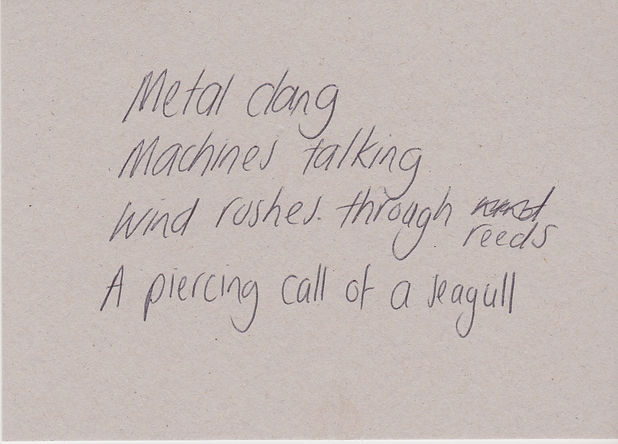 Metal clang
Machines talking
Wind rushes through
reeds
A piercing call of a seagull